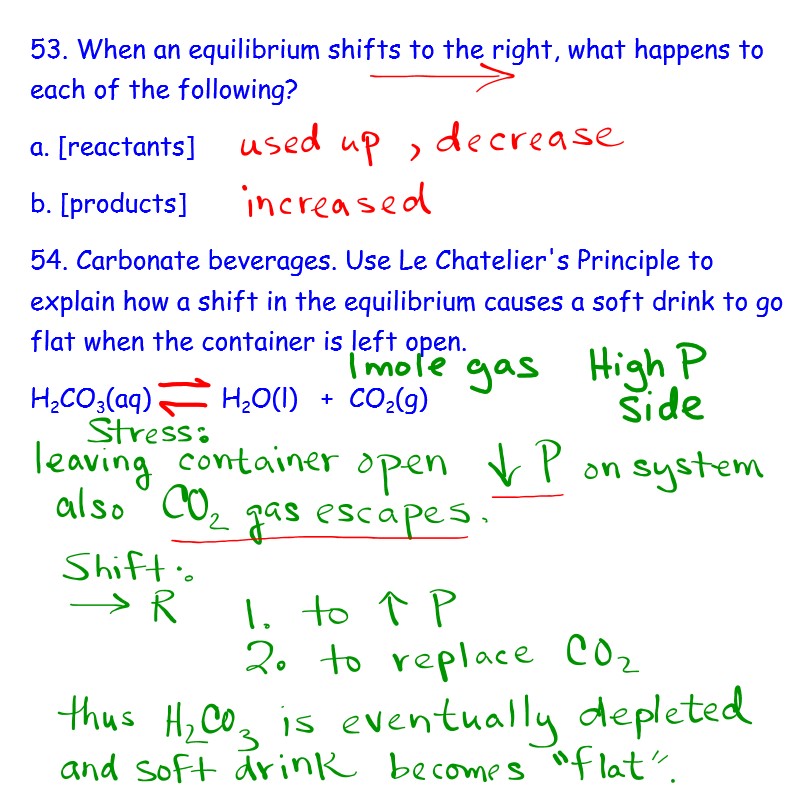 53. When an equilibrium shifts to the right, what happens to
each of the following?
a. [reactants] used up, decrease
b. [products] increased
54. Carbonate beverages. Use Le Chatelier's Principle to
explain how a shift in the equilibrium causes a soft drink to go
flat when the container is left open.
1 mole gas High P
side
H₂CO₃(aq) ⇌ H₂O(l) + CO₂(g)
Stress:
leaving container open ↓ P on system
also CO₂ gas escapes.
Shift:
→ R 1. to ↑ P
2. to replace CO₂
thus H₂CO₃ is eventually depleted
and soft drink becomes "flat".